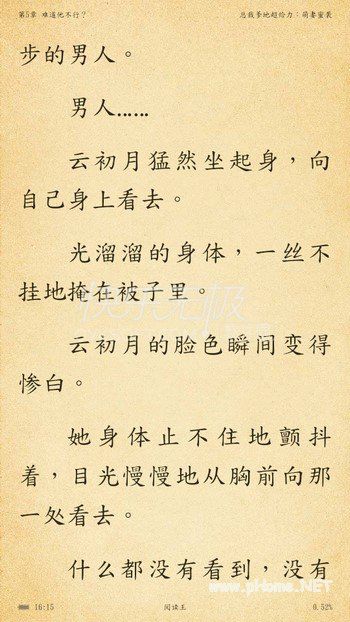 第5章 难道他不行？
总裁掌她超给力：萌妻蜜袭
步的男人。
男人……
云初月猛然坐起身，向
自己身上看去。
光溜溜的身体，一丝不
挂地掩在被子里。
云初月的脸色瞬间变得
惨白。
她身体止不住地颤抖
着，目光慢慢地从胸前向那
一处看去。
什么都没有看到，没有
www.pHome.NET
16:15
阅读王
0.52%